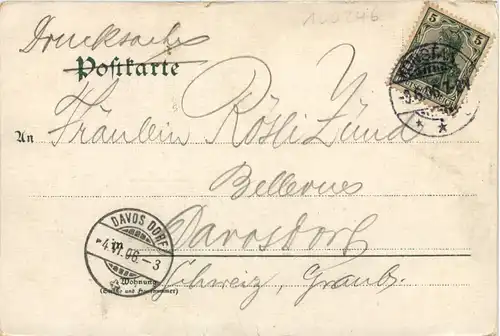 Drucksache
Postkarte
5
An Fräulein Rösli Zünd
Bellevue
Davosdorf
DAVOS DORF
4.VI.06.-3
in
Schweiz, Graub.
Wohnung
(Straße und Hausnummer)